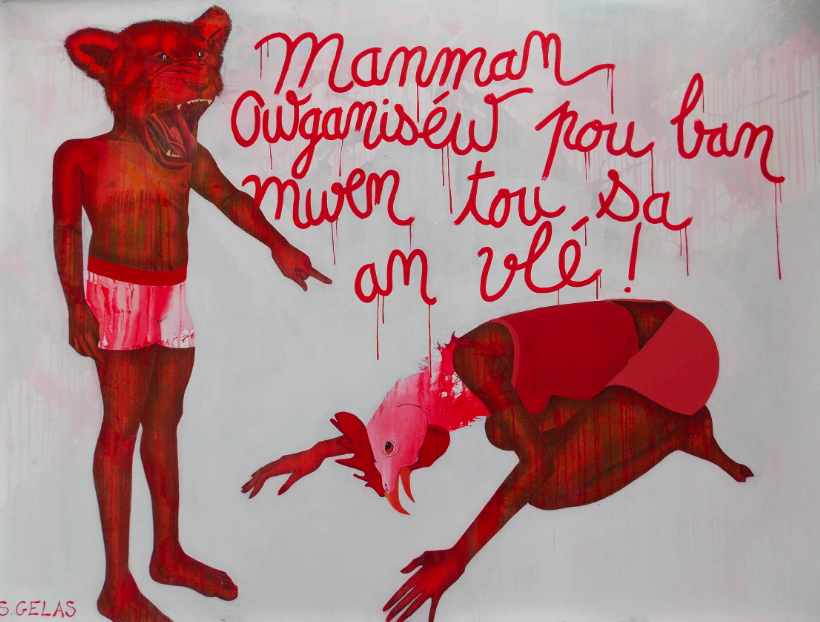 Manman
Owganiséw pou ban
mwen tou sa
an vlé !
S. GELAS